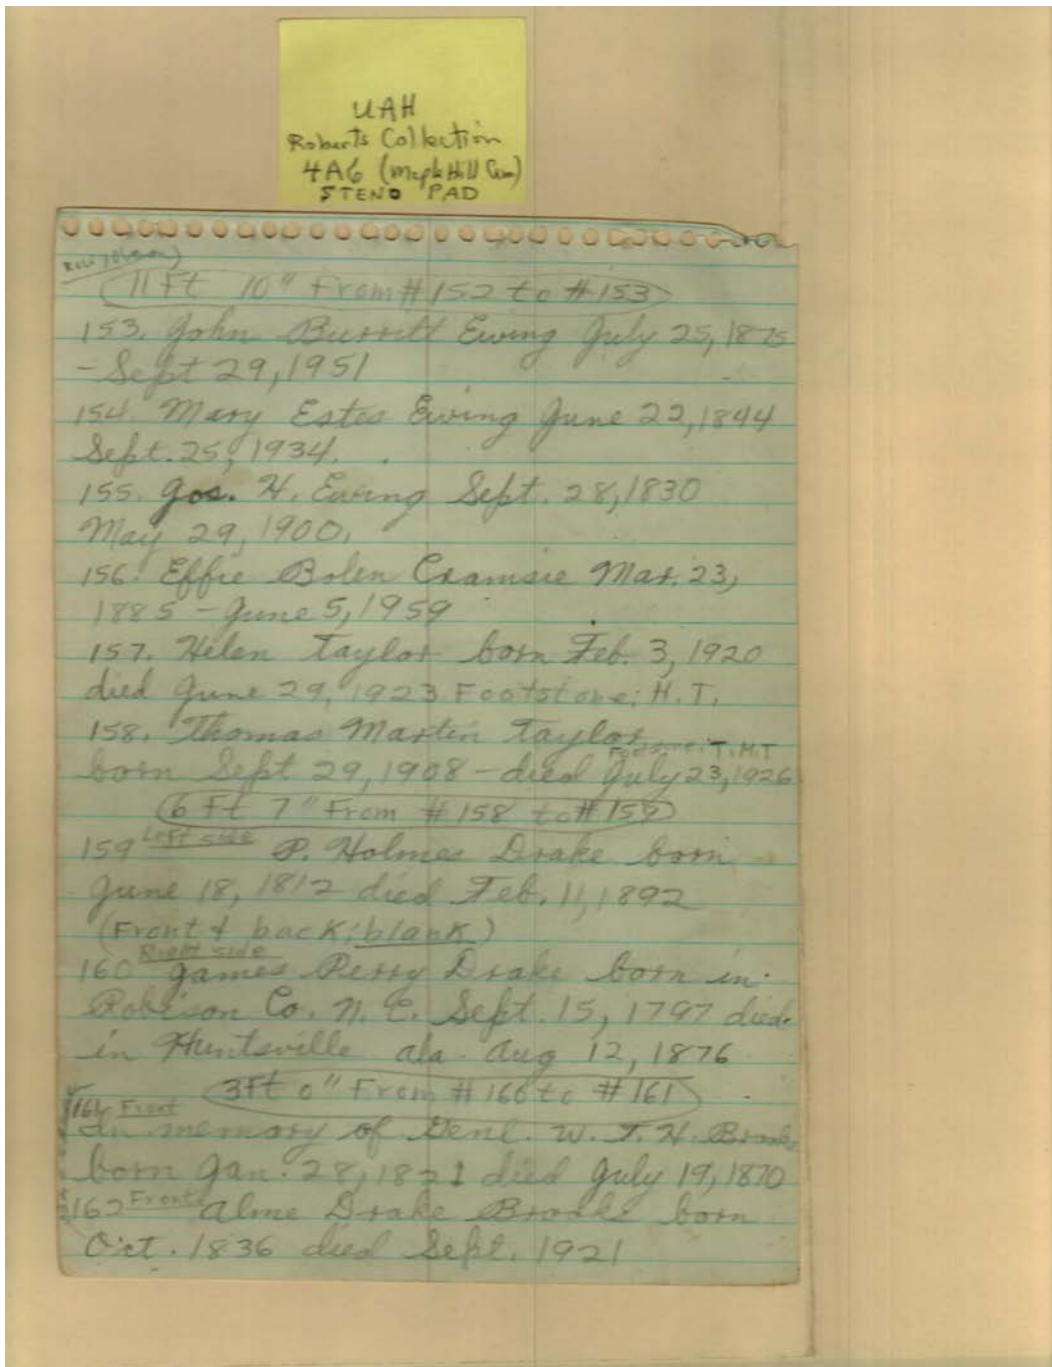 UAH
Roberts Collection
4A6 (Maple Hill Cem)
STENO PAD
11 Ft 10" From #152 to #153
153. John Burritt Ewing July 25, 1875
- Sept 29, 1951
154. Mary Estes Ewing June 22, 1844
Sept. 25, 1934.
155. Jos. H. Ewing Sept. 28, 1830
May 29, 1900.
156. Effie Bolen Cramsie Mar. 23,
1885 - June 5, 1959
157. Helen Taylor born Feb. 3, 1920
died June 29, 1923 Footstone: H.T.
158. Thomas Martin Taylor
Footstone: T.M.T
born Sept 29, 1908 - died July 23, 1926
6 Ft 7" From #158 to #159
159 Left side P. Holmes Drake born
June 18, 1812 died Feb. 11, 1892
(Front & back: blank)
Right side
160 James Perry Drake born in
Robison Co. N. C. Sept. 15, 1797 died
in Huntsville Ala. Aug 12, 1876
3Ft 0" From #160 to #161
161. Front
In memory of Genl. W. T. H. Brooks
born Jan. 28, 1821 died July 19, 1870
162 Front Alme Drake Brooks born
Oct. 1836 died Sept. 1921